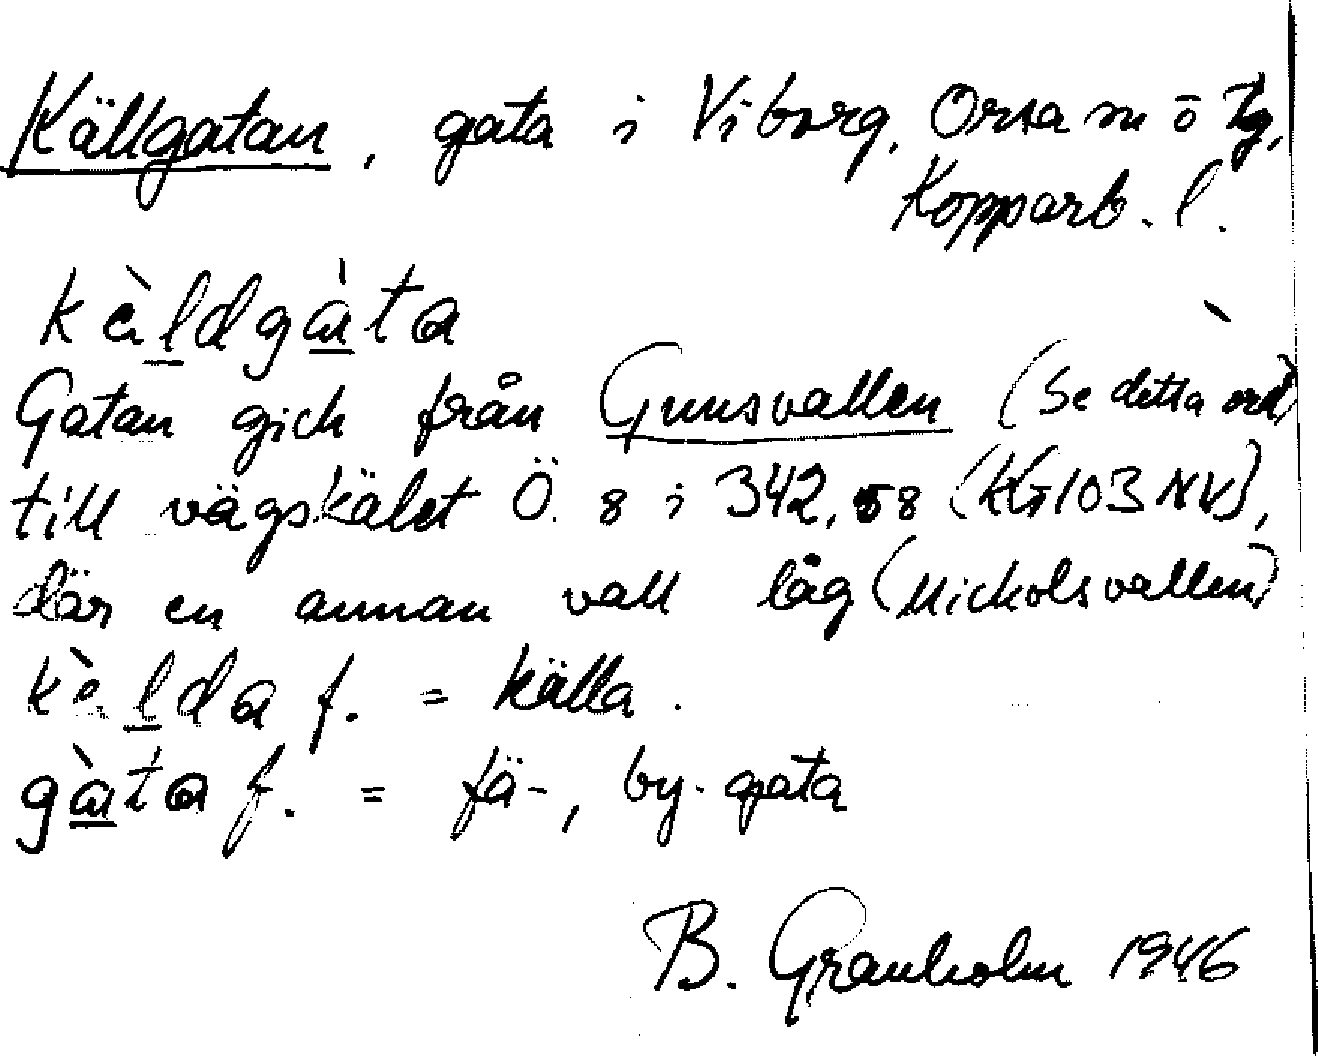 Källgatan, gata i Viborg, Orsa sn ö tg,
Kopparb. l.
kèldgàta
Gatan gick från Gunsvallen (Se detta ord)
till vägskälet Ö. 8 i 342, 58 (KG 103 NV),
där en annan vall låg (Nickolsvallen)
kèlda f. = källa.
gàta f. = fä-, by-gata
B. Granholm 1946